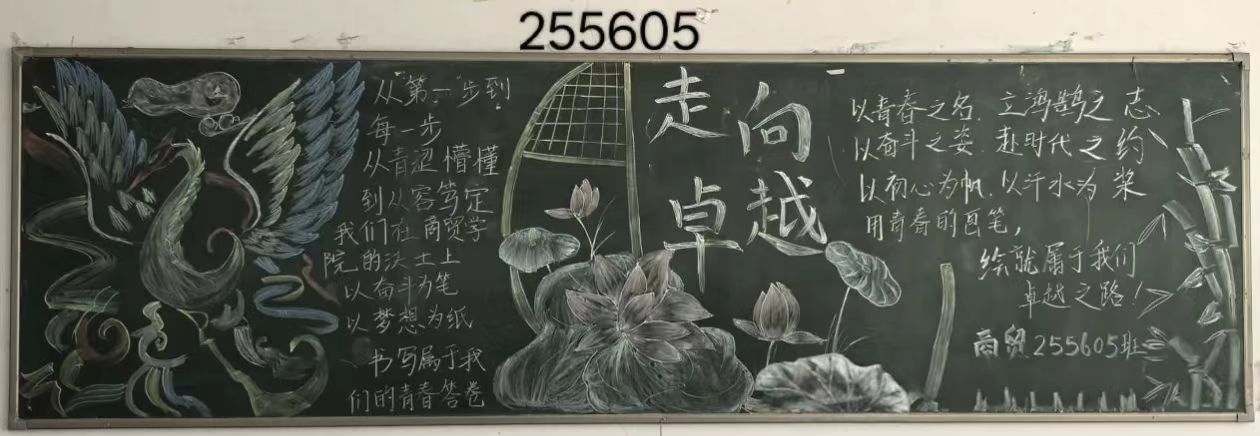 255605
从“第一步到
每一步
从青涩懵懂
到从容笃定
我们在商贸学
院的沃土上
以奋斗为笔
以梦想为纸
书写属于我
们的青春答卷
走向
卓越
以青春之名，立鸿鹄之志
以奋斗之姿，赴时代之约
以初心为帆，以汗水为桨
用青春的画笔，
绘就属于我们
卓越之路！
商贸255605班